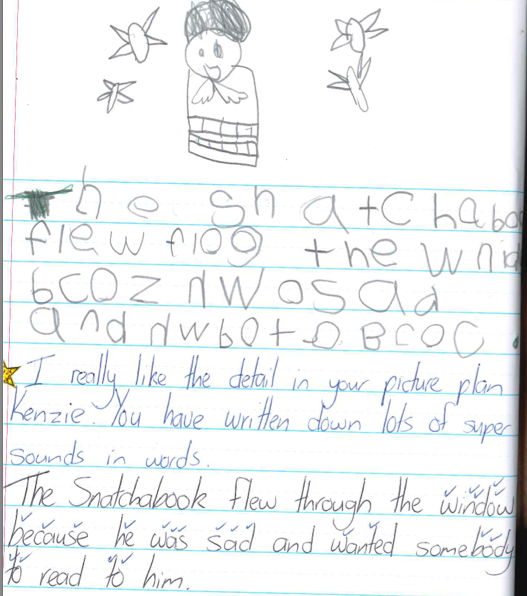 The ShatChabo
flew floo the wni
bcoz
and
I really like the detail in your picture plan
Kenzie. You have written down lots of super
sounds in words.
The Snatchabook flew through the window
because he was sad and wanted somebody
to read to him.